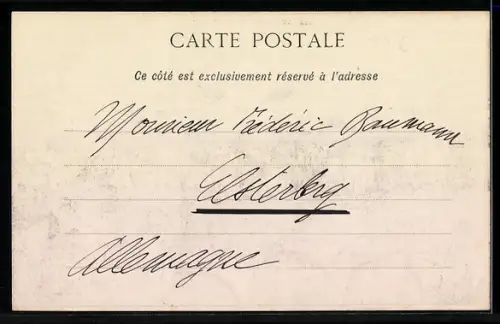 CARTE POSTALE
Ce côté est exclusivement réservé à l'adresse
Monsieur Frédéric Baumann
Elsterberg
Allemagne